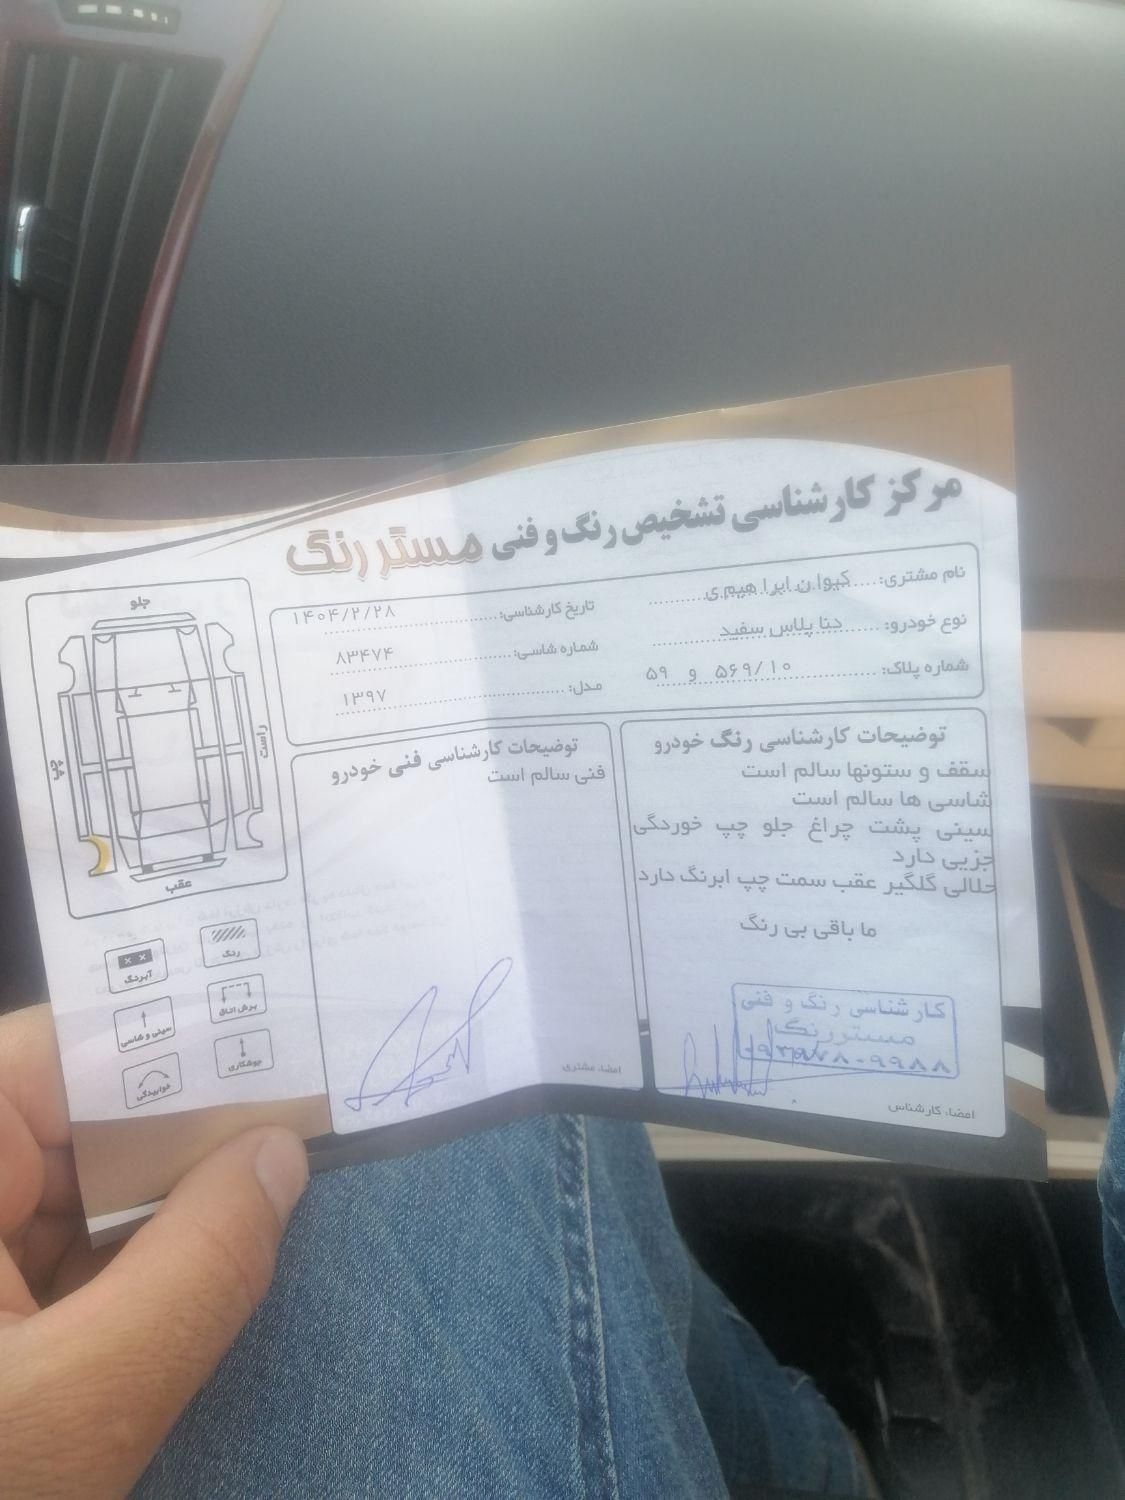 مرکز کارشناسی تشخیص رنگ و فنی مستر رنگ
نام مشتری: کیوان ابراهیمی
تاریخ کارشناسی: ۱۴۰۴/۲/۲۸
نوع خودرو: دنا پلاس سفید
شماره شاسی: ۸۳۴۷۴
شماره پلاک: ۵۶۹/۱۰ و ۵۹
مدل: ۱۳۹۷
توضیحات کارشناسی رنگ خودرو
سقف و ستونها سالم است
شاسی ها سالم است
سینی پشت چراغ جلو چپ خوردگی
جزیی دارد
حلالی گلگیر عقب سمت چپ ابرنگ دارد
ما باقی بی رنگ
کارشناسی رنگ و فنی
مستررنگ
امضاء کارشناس
توضیحات کارشناسی فنی خودرو
فنی سالم است
امضاء مشتری
جلو
راست
چپ
عقب
رنگ
آبرنگ
برش اتاق
سینی و شاسی
جوشکاری
خوابیدگی